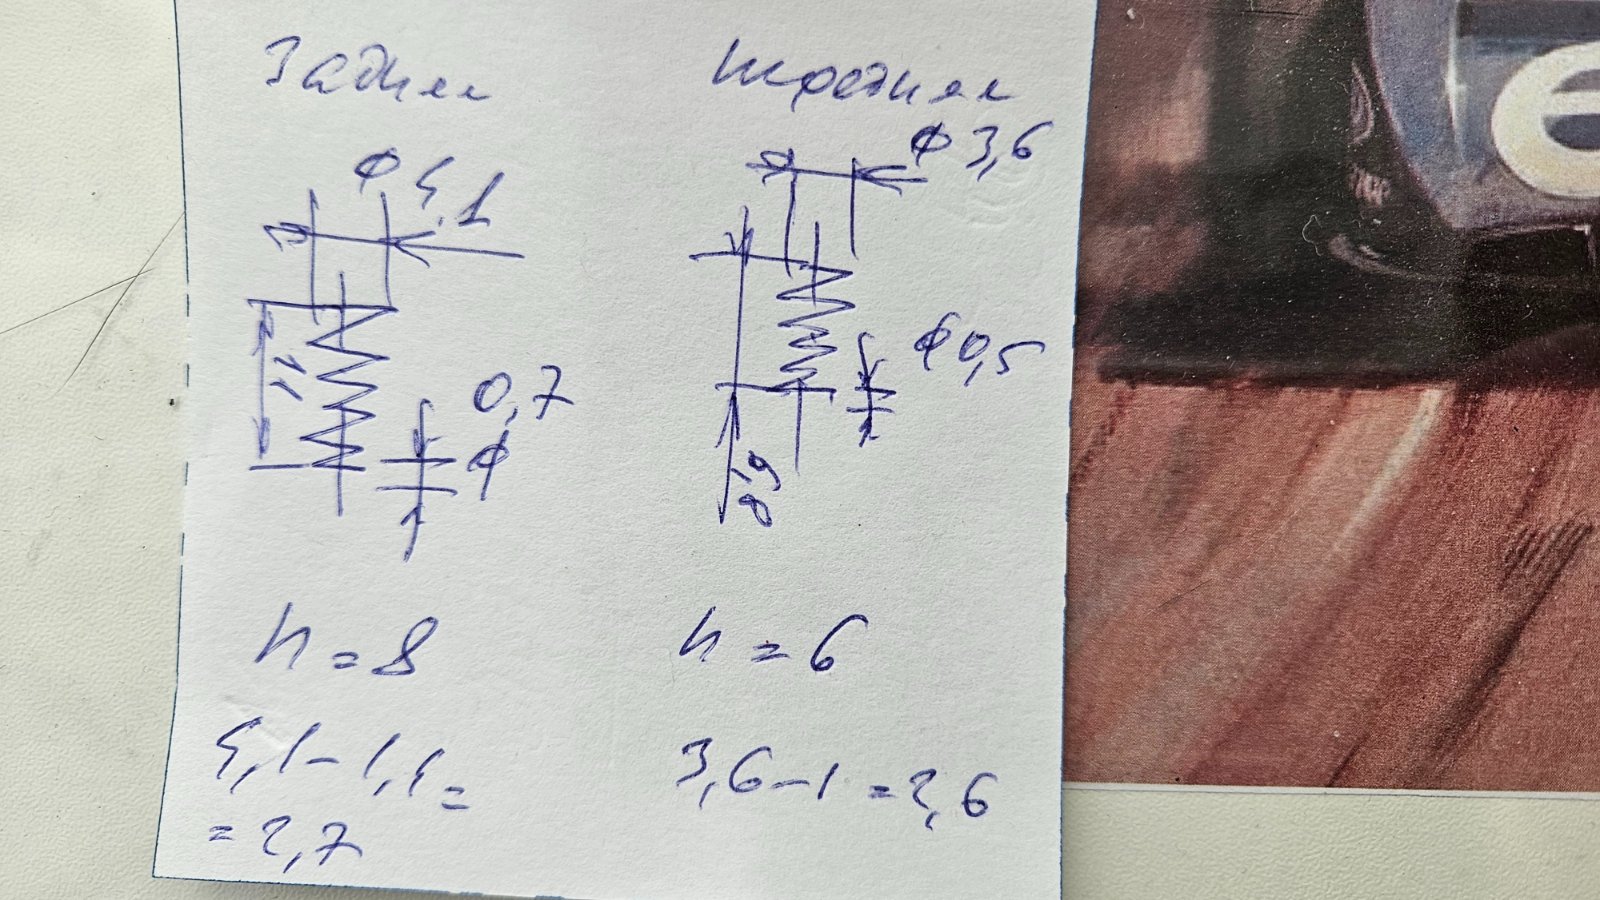 Задняя
Передняя
ϕ 4,1
ϕ 3,6
11
0,7
ϕ
ϕ0,5
8,9
n = 8
n = 6
4,1 - 1,4 =
= 2,7
3,6 - 1 = 2,6